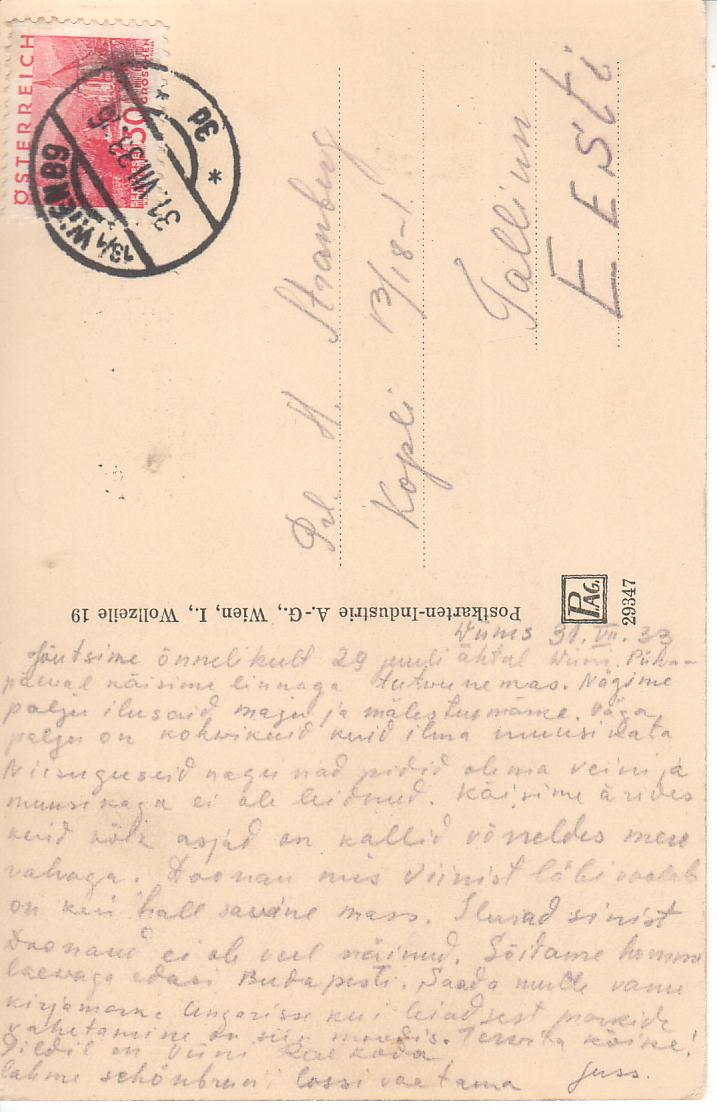 ÖSTERREICH
30
GROSCHEN
13/1 WIEN 89
31.VII.33
3d
*
Prl. H. Stranberg
Kopli 13/18-1.
Tallinn
EESti
Postkarten-Industrie A.-G., Wien, I., Wollzeile 19
PAG.
29347
Wiinis 31.VII.33
Jõutsime õnnelikult 29 juuli õhtul Wiini. Püha-
päeval käisime linnaga tutvunemas. Nägime
palju ilusaid maju ja mälestusmärke. Väga
palju on kohvikuid kuid ilma muusikata
Niisuguseid nagu nad pidid olema veini ja
muusikaga ei ole leidnud. Käisime ärides
kuid kõik asjad on kallid võrreldes meie
rahaga. Doonau mis Viinist läbi voolab
on kui hall savine mass. Ilusad sinist
Doonaud ei ole veel näinud. Sõidame homme
laevaga edasi Budapesti. Saada mulle vanu
kirjamarke Ungarisse kui leiad sest markide
vahetamine on siin moodis. Tervita kõiki!
Pildil on Viini Raekoda
lähme schönbruni lossi vaatama
Juss.